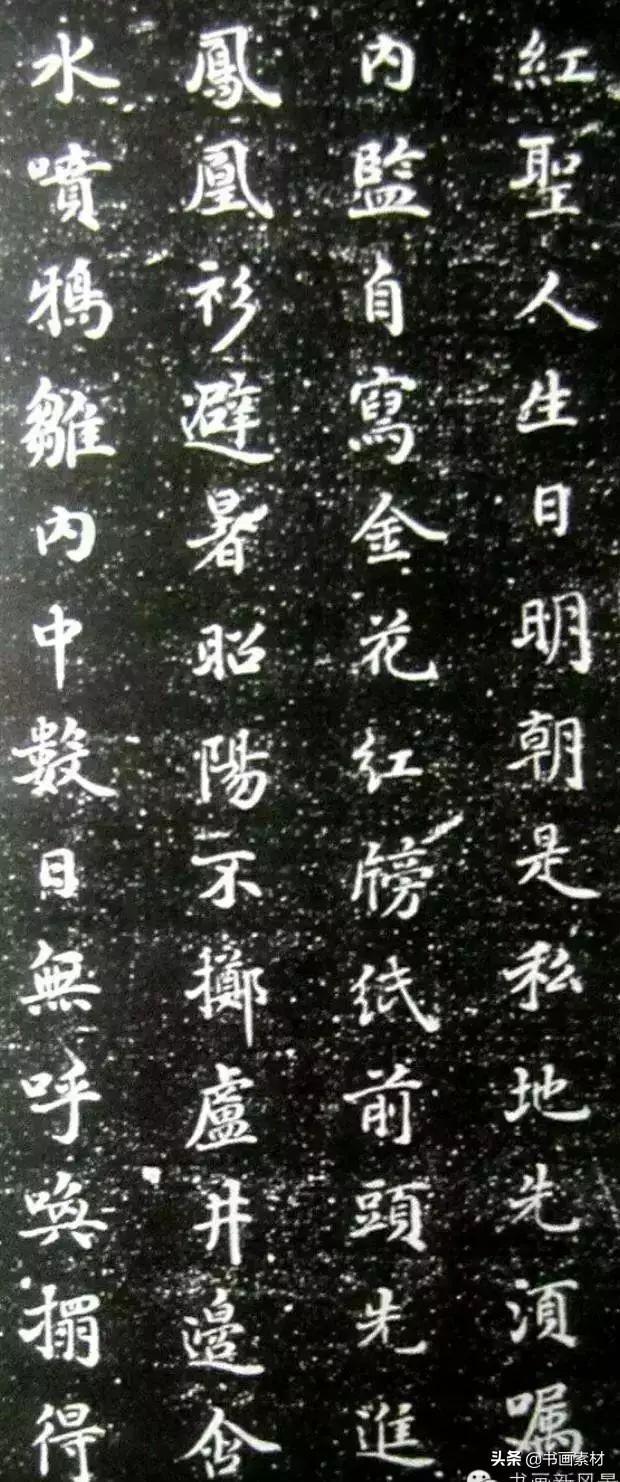 紅聖人生日明朝是私地先須嘱
内監自寫金花紅牓紙前頭先進
鳳凰衫避暑昭陽不擲盧井邊含
水噴鴉雛内中數日無呼喚搨得
头条 @书画素材